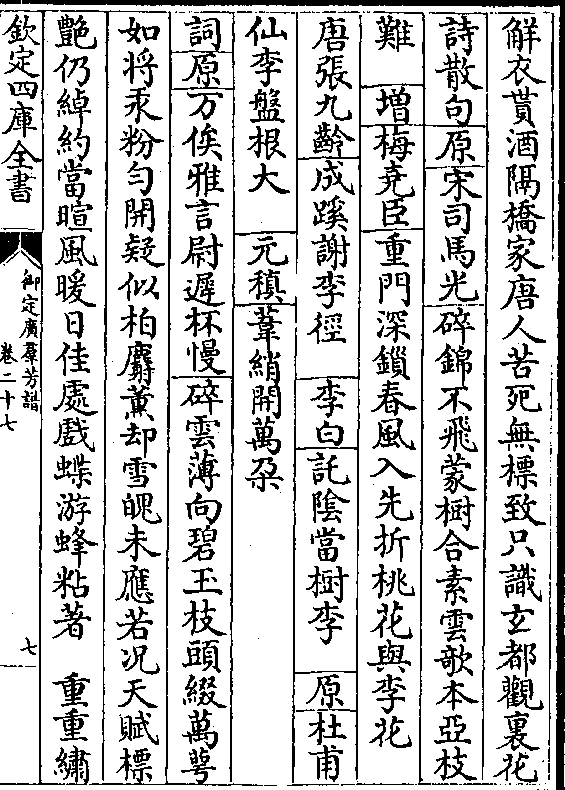 解衣貰酒隔橋家唐人苦死無標致只識玄都觀裏花
詩散句原宋司馬光碎錦不飛蒙樹合素雲欹本亞枝
難 增梅堯臣重門深鎖春風入先折桃花與李花
唐張九齡成蹊謝李徑 李白託陰當樹李 原杜甫
仙李盤根大 元稹葦綃開萬朶
詞原万俟雅言尉遲杯慢碎雲薄向碧玉枝頭綴萬萼
如將汞粉勻開疑似柏麝薰却雪魄未應若况天賦標
艶仍綽約當暄風暖日佳處戲蝶游蜂粘著 重重繡
欽定四庫全書
御定廣羣芳譜
卷二十七
七